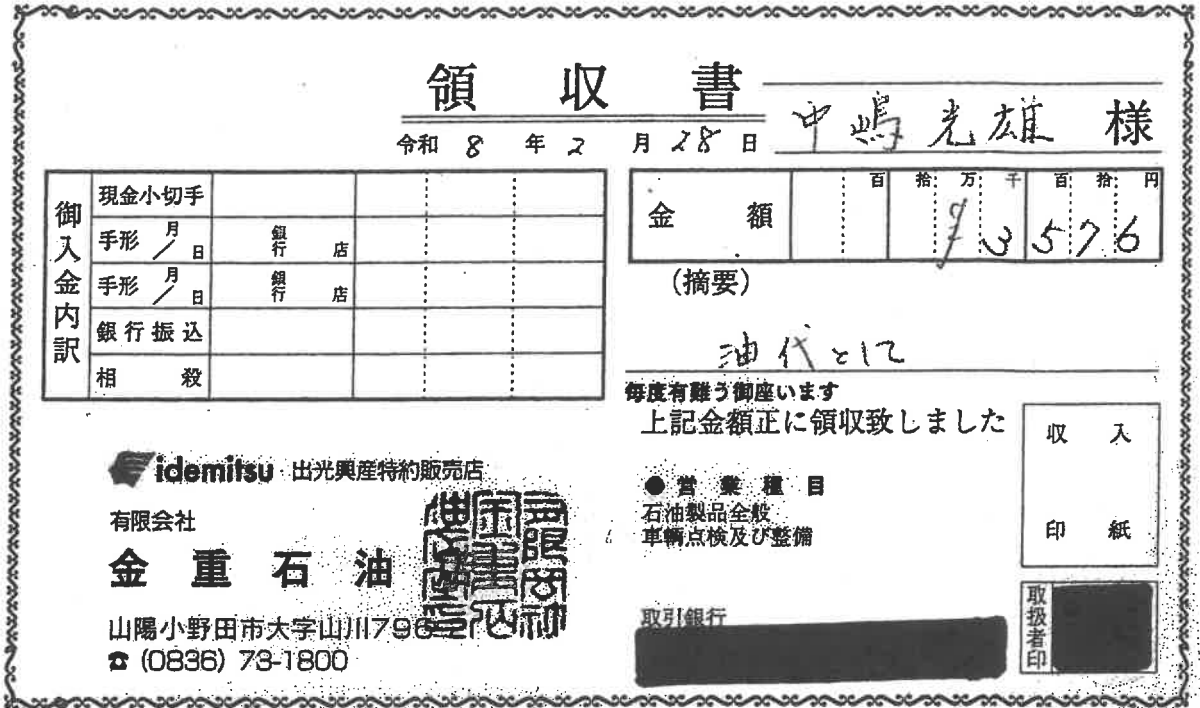 領収書
中嶋光雄 様
令和 8 年 2 月 28 日
御入金内訳
現金小切手
手形 月/日 銀行 店
手形 月/日 銀行 店
銀行振込
相殺
金額 百 拾 万 千 百 拾 円
¥3576
(摘要)
油代として
毎度有難う御座います
上記金額正に領収致しました
収入
印紙
idemitsu 出光興産特約販売店
有限会社
金重石油
山陽小野田市大字山川796-21
☎ (0836) 73-1800
●営業種目
石油製品全般
車輌点検及び整備
取引銀行
取扱者印